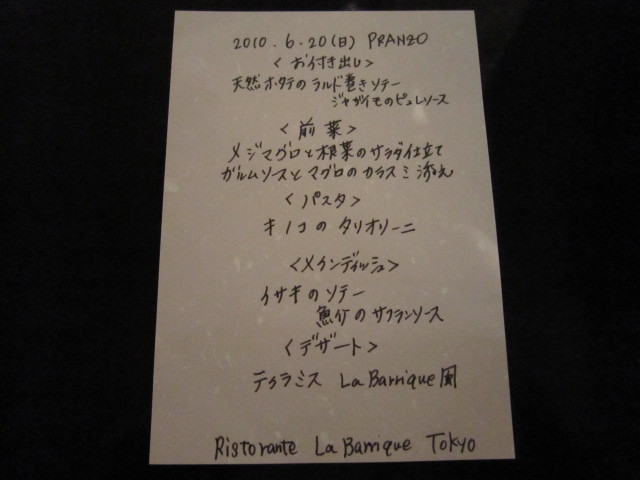 2010.6.20(日) PRANZO
<お付き出し>
天然ホタテのラルド巻きソテー
ジャガイモのピュレソース
<前菜>
メジマグロと根菜のサラダ仕立て
ガルムソースとマグロのカラスミ添え
<パスタ>
キノコのタリオリーニ
<メインディッシュ>
イサキのソテー
魚介のサフランソース
<デザート>
ティラミス La Barrique風
Ristorante La Barrique Tokyo